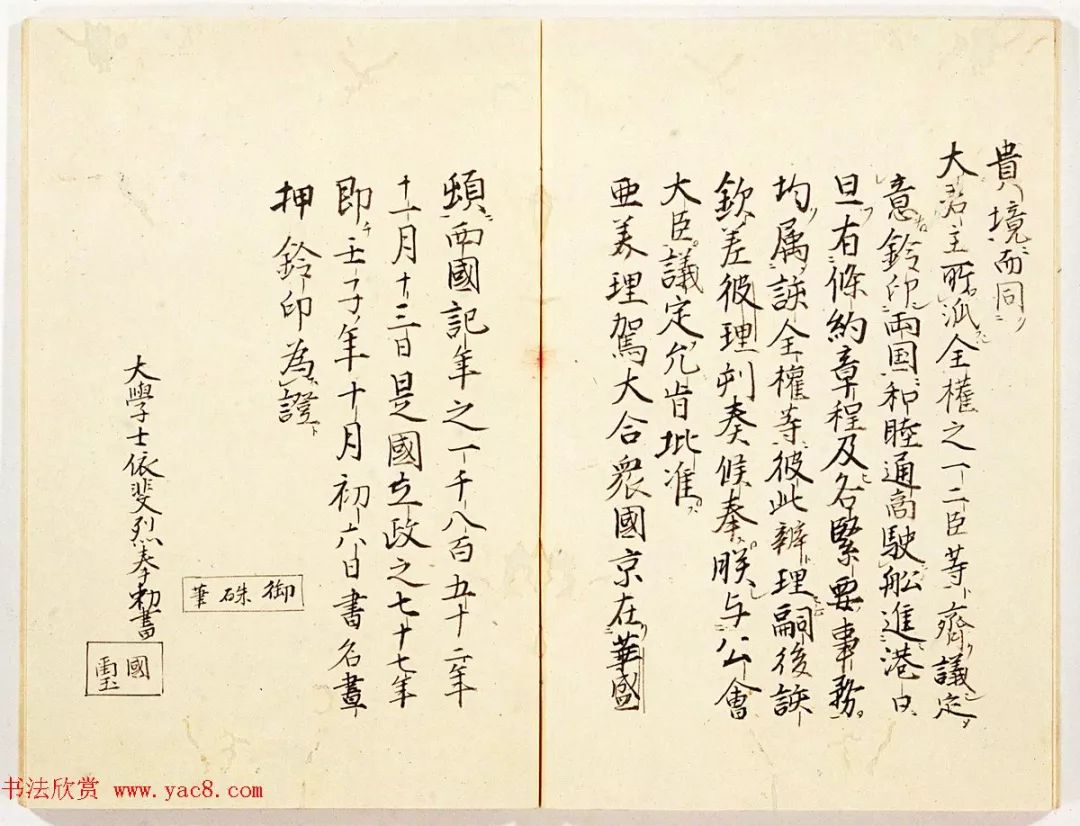 貴境而同
大君主所派全權之一二臣等齊議定
意鈐印兩国和睦通商駛船進港日
旦右條約章程及名緊要事務
均属該全權等彼此辨理嗣後該
欽差彼理列奏候奏朕与公會
大臣議定允肯批准
亜美理駕大合衆國京在華盛
頓兩國記年之一千八百五十二年
十一月十三日是國立政之七十七年
即壬子年十月初六日書名畫
押鈐印為證
御硃筆
大學士依斐烈奉勅書
國璽
书法欣赏 www.yac8.com